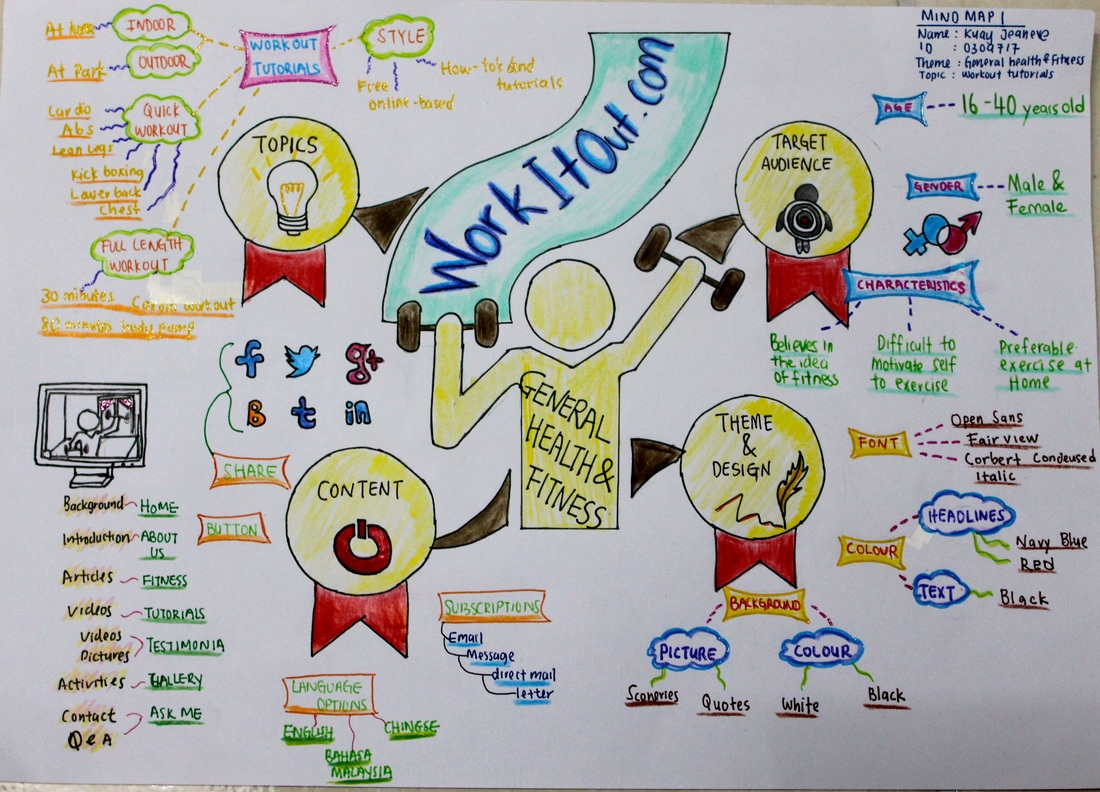 MIND MAP 1
Name : Kuay Jeaneve
ID : 0309717
Theme : General health & Fitness
Topic : Workout tutorials
WorkItOut.com
GENERAL
HEALTH &
FITNESS
TOPICS
WORKOUT
TUTORIALS
INDOOR
At home
OUTDOOR
At Park
QUICK
WORKOUT
Cardio
Abs
Lean Legs
Kick boxing
Lower back
Chest
FULL LENGTH
WORKOUT
30 minutes Cardio workout
minutes body pump
STYLE
Free
online-based
How-to's and
tutorials
TARGET
AUDIENCE
AGE
16-40 years old
GENDER
Male &
Female
CHARACTERISTICS
Believes in
the idea
of fitness
Difficult to
motivate self
to exercise
Preferable
exercise at
Home
THEME
&
DESIGN
FONT
Open Sans
Fair view
Corbert Condensed
Italic
COLOUR
HEADLINES
Navy Blue
RED
TEXT
Black
BACKGROUND
PICTURE
Sceneries
Quotes
COLOUR
White
Black
CONTENT
SHARE
f
g+
B
t
in
BUTTON
Background HOME
Introduction ABOUT
US
Articles FITNESS
Videos TUTORIALS
Videos
Pictures TESTIMONIA
Activities GALLERY
Contact ASK ME
Q & A
LANGUAGE
OPTIONS
ENGLISH
BAHASA
MALAYSIA
CHINESE
SUBSCRIPTIONS
Email
Message
direct mail
letter